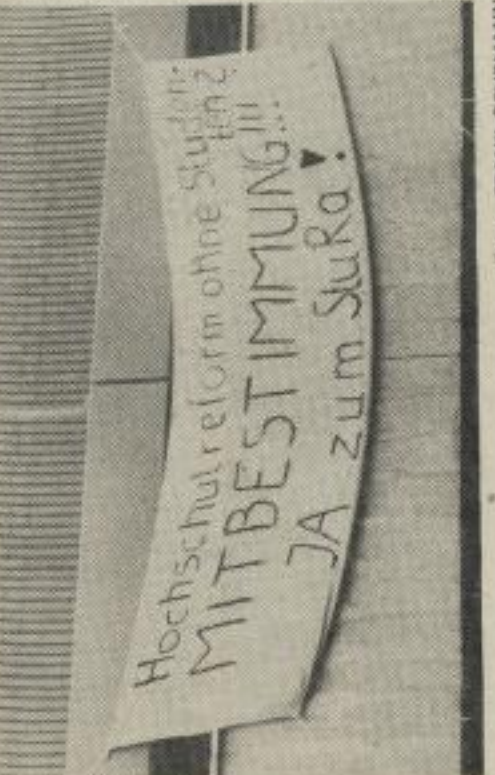 Hochschulreform ohne Studen-
ten?
MITBESTIMMUNG!!!
JA zum StuRa!